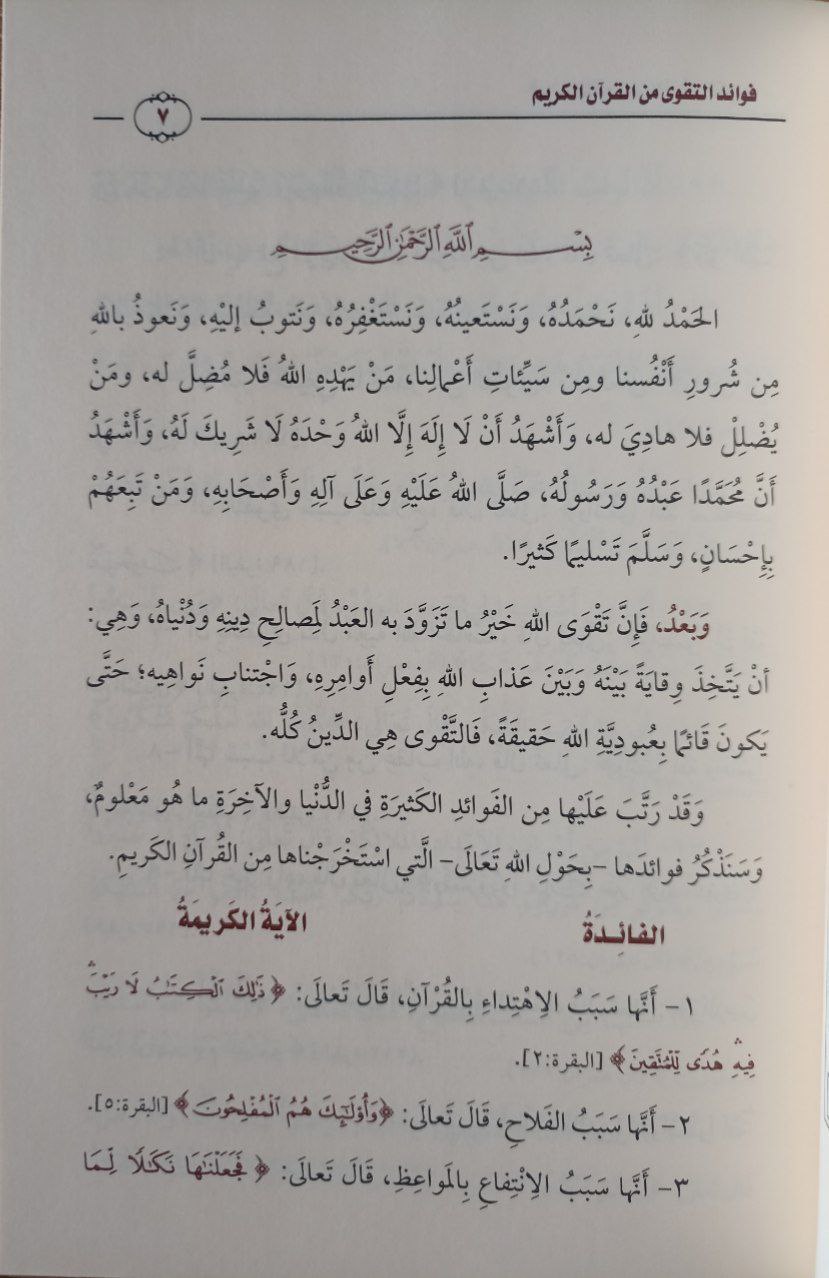 فوائد التقوى من القرآن الكريم
٧
بِسْمِ ٱللَّهِ ٱلرَّحْمَٰنِ ٱلرَّحِيمِ
الحَمْدُ للهِ، نَحْمَدُهُ، وَنَسْتَعينُهُ، وَنَسْتَغْفِرُهُ، وَنَتوبُ إليْهِ، وَنَعوذُ باللهِ
مِن شُرورِ أَنْفُسنا ومِن سَيِّئاتِ أَعْمالِنا، مَنْ يَهْدِهِ اللهُ فَلا مُضِلَّ له، ومَنْ
يُضْلِلْ فلا هادِيَ له، وَأَشْهَدُ أَنْ لَا إِلَهَ إِلَّا اللهُ وَحْدَهُ لَا شَرِيكَ لَهُ، وَأَشْهَدُ
أَنَّ مُحَمَّدًا عَبْدُهُ وَرَسُولُهُ، صَلَّى اللهُ عَلَيْهِ وَعَلَى آلِهِ وَأَصْحَابِهِ، وَمَنْ تَبِعَهُمْ
بِإِحْسَانٍ، وَسَلَّمَ تَسْليمًا كَثيرًا.
وَبَعْدُ، فَإِنَّ تَقْوَى اللهِ خَيْرُ ما تَزَوَّدَ به العَبْدُ لِمَصالِحِ دِينِهِ وَدُنْياهُ، وَهِي:
أنْ يَتَّخِذَ وِقايَةً بَيْنَهُ وَبَيْنَ عَذابِ اللهِ بِفِعْلِ أَوامِرِهِ، وَاجْتنابِ نَواهِيه؛ حَتَّى
يَكونَ قَائمًا بِعُبوديَّةِ اللهِ حَقيقَةً، فَالتَّقْوى هِي الدِّينُ كُلُّه.
وَقَدْ رَتَّبَ عَلَيْها مِن الفَوائدِ الكَثيرَةِ في الدُّنْيا والآخِرَةِ ما هُو مَعْلومٌ،
وَسَنَذْكُرُ فوائدَها -بِحَوْلِ اللهِ تَعَالَى- الَّتي اسْتَخْرَجْناها مِن القُرآنِ الكَريمِ.
الفائِدَةُ الآيَةُ الكَرِيمَةُ
١- أَنَّها سَبَبُ الاِهْتِداءِ بِالقُرْآنِ، قَالَ تَعالَى: ﴿ ذَٰلِكَ ٱلْكِتَٰبُ لَا رَيْبَۛ
فِيهِۛ هُدًى لِّلْمُتَّقِينَ ﴾ [البقرة:٢].
٢- أَنَّها سَبَبُ الفَلاحِ، قَالَ تَعالَى: ﴿وَأُوْلَٰٓئِكَ هُمُ ٱلْمُفْلِحُونَ ﴾ [البقرة:٥].
٣- أَنَّها سَبَبُ الاِنْتِفاعِ بِالمَواعِظِ، قَالَ تَعالَى: ﴿ فَجَعَلْنَٰهَا نَكَٰلًا لِّمَا